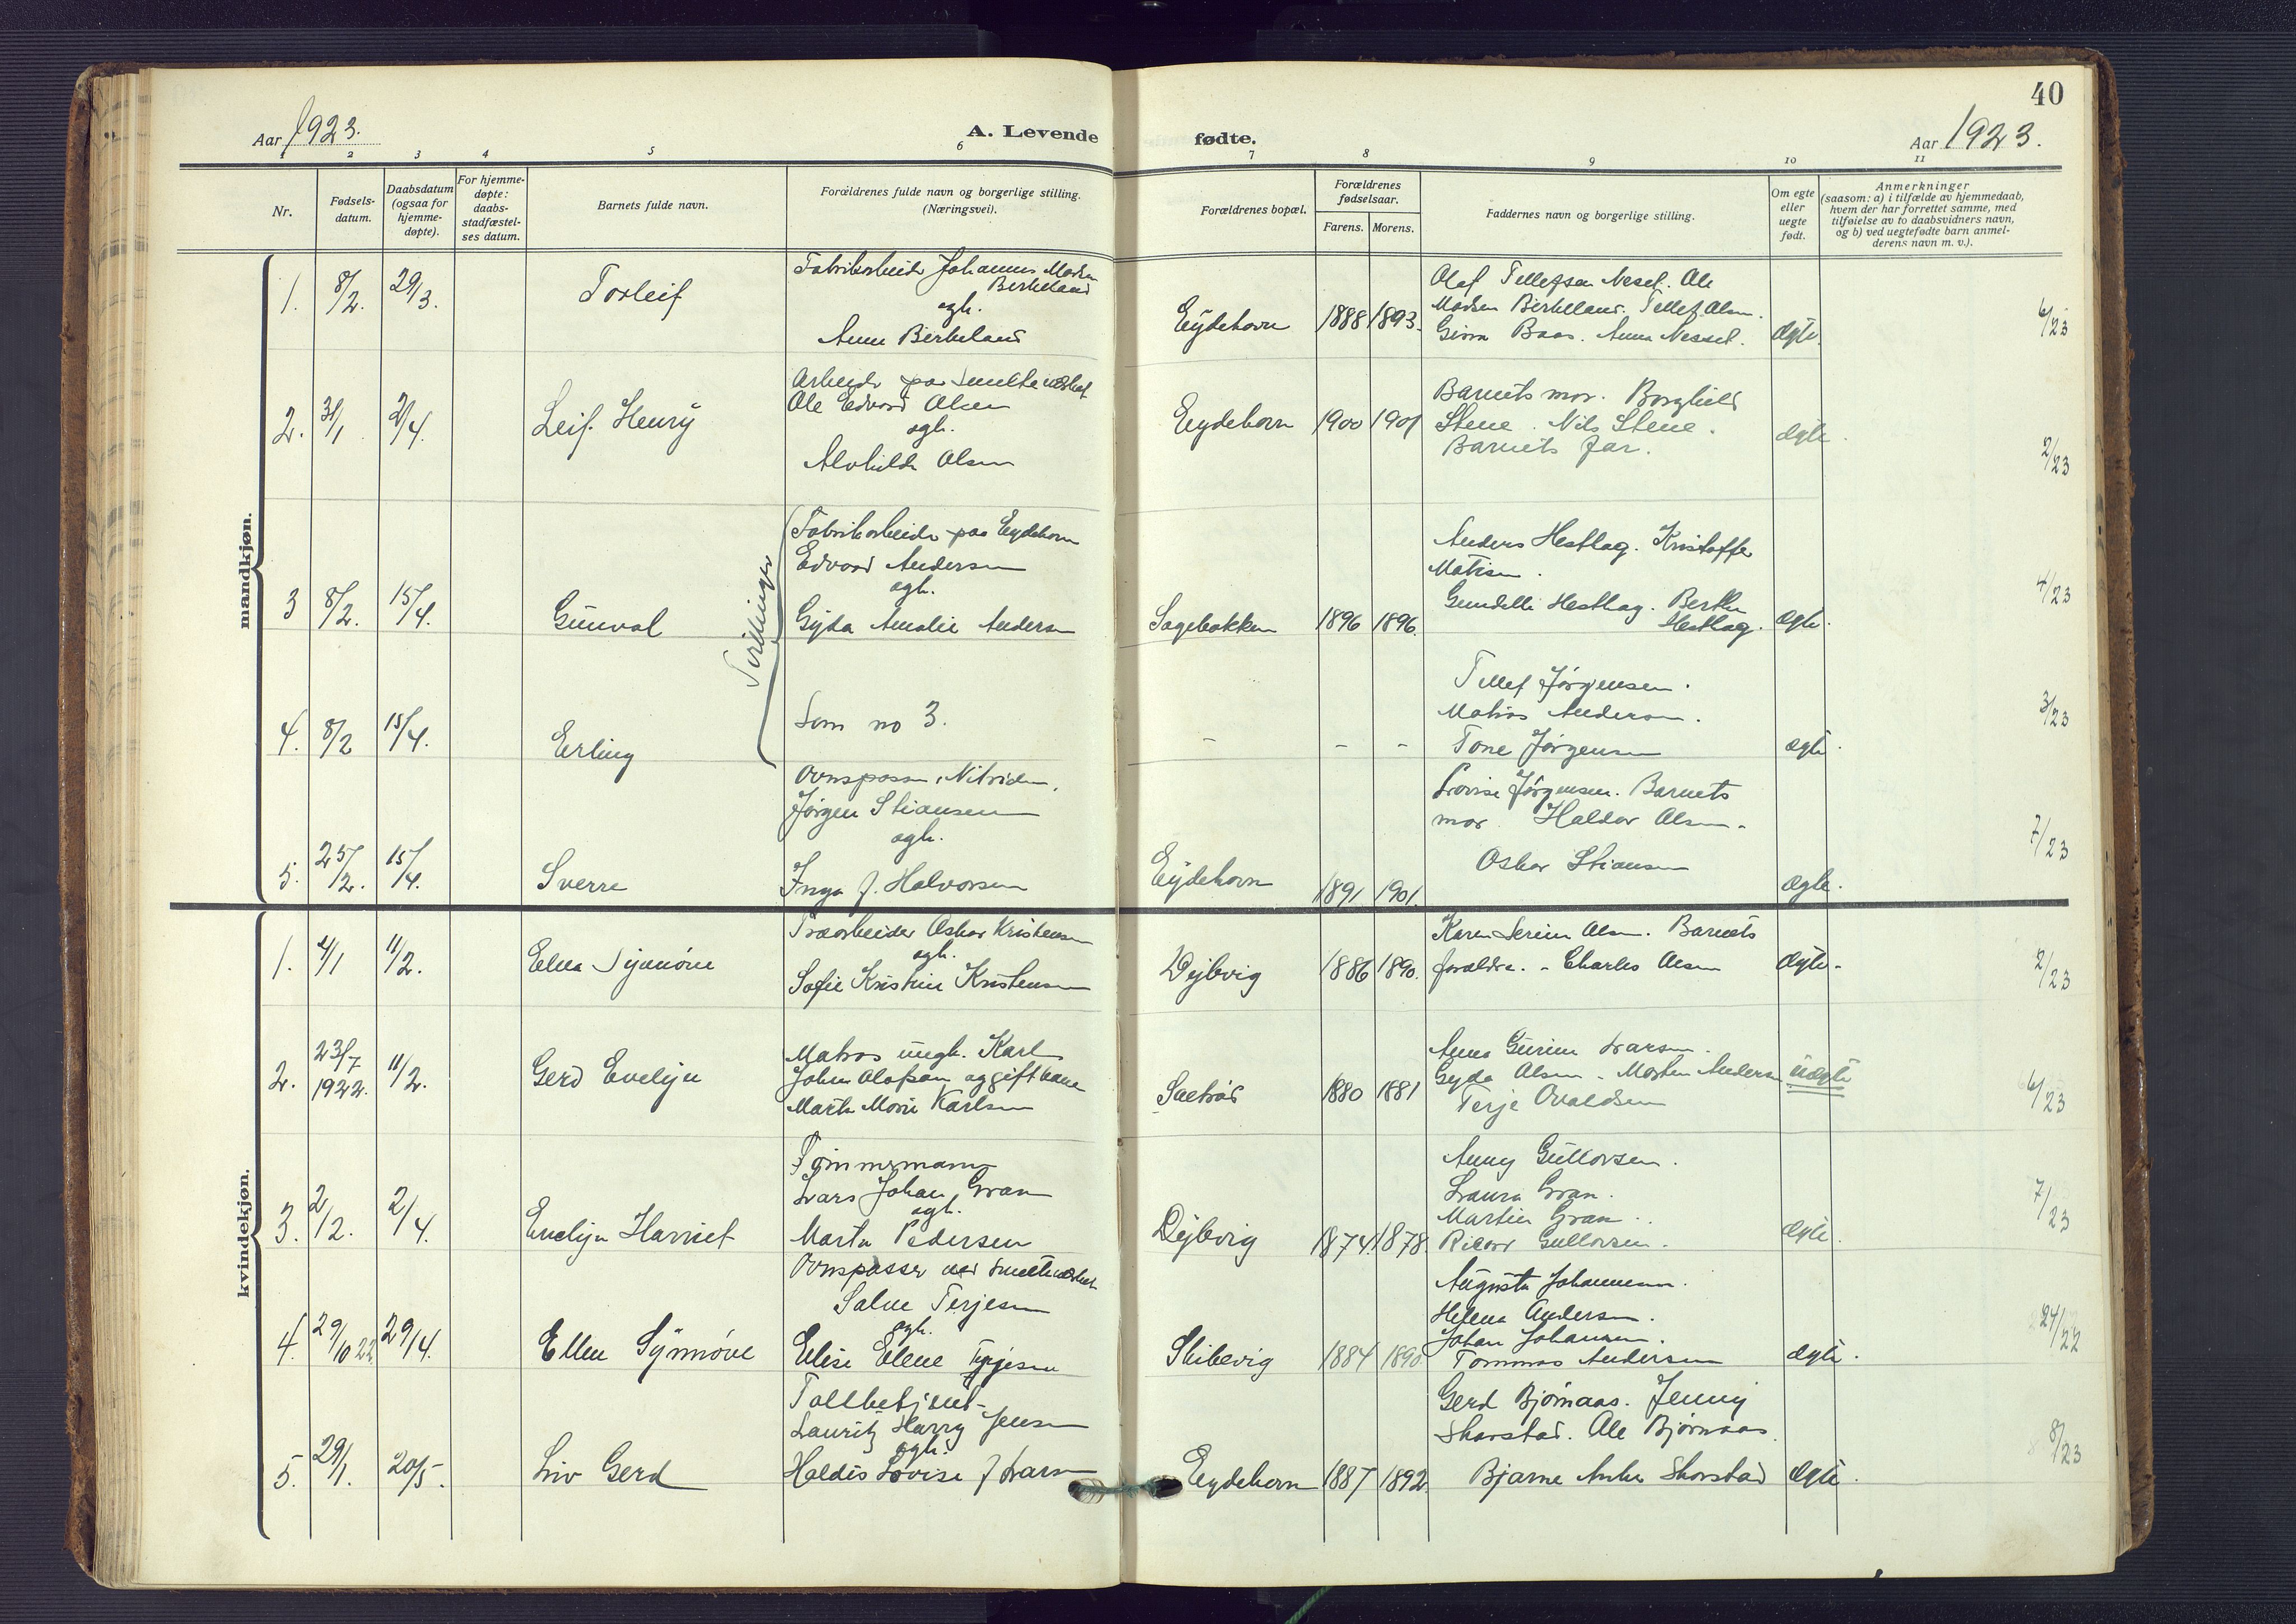 40
Aar 1923.
A. Levende
fødte.
Aar 1923.
1 2 3 4 5 6 7 8 9 10 11
Nr.
Fødsels-
datum.
Daabsdatum
(ogsaa for
hjemme-
døpte).
For hjemme-
døpte:
daabs-
stadfæstel-
ses datum.
Barnets fulde navn.
Forældrenes fulde navn og borgerlige stilling.
(Næringsvei).
Forældrenes bopæl.
Forældrenes
fødselsaar.
Farens. Morens.
Faddernes navn og borgerlige stilling.
Om egte
eller
uegte
født.
Anmerkninger
(saasom: a) i tilfælde av hjemmedaab,
hvem der har forrettet samme, med
tilføielse av to daabsvidners navn,
og b) ved uegtefødte barn anmel-
derens navn m. v.).
mandkjøn.
1. 8/2. 29/3. Torleif
Fabrikarbeider Johannes Madsen
Birkeland
ogh.
Anne Birkeland
Eydehavn 1888 1893.
Olaf Tellefsen Nesel. Ole
Madsen Birkeland. Tellef Olsen.
Baas. Anna Nessel.
ægte.
6/23
2. 31/1 2/4. Leif Henry
Arbeider paa Smelteverket
Ole Edvard Olsen
ogh.
Alvhilde Olsen
Eydehavn 1900 1901
Barnets mor. Borghild
Stene. Nils Stene.
Barnets far.
ægte.
2/23
Tvillinger
3 8/2. 15/4. Gunval
Fabrikarbeider paa Eydehavn
Edvard Andersen
ogh.
Gyda Amalie Andersen
Sagebakken 1896 1896.
Anders Hestlag. Kristoffer
Matisen.
Hestlag. Berthe
Hestlag.
ægte.
4/23
4. 8/2 15/4. Erling
Som no 3.
- - -
Tellef Jørgensen.
Matias Andersen.
Tone Jørgensen
ægte.
3/23
5. 25/2. 15/4. Sverre
Ovnspasser, Nitriden,
Jørgen Stiansen
ogh.
Inga f. Halvorsen
Eydehavn 1891 1901.
Lovise Jørgensen. Barnets
mor. Haldor Olsen.
Oskar Stiansen
ægte.
7/23
kvindekjøn.
1. 4/1 11/2. Elna Synnøve
Træarbeider Oskar Kristensen
ogh.
Sofie Kristine Kristensen
Vejlevig 1886 1890.
Karen Serine Olsen. Barnets
forældre. - Charles Olsen
ægte.
2/23
2. 23/7 1922. 11/2. Gerd Evelyn
Matros ungk. Karl
Johan Olofson og gift kone
Marta Marie Karlsen
Saltrød 1880 1881
Anna Gurine Larsen.
Gyda Olsen - Morten Andersen
Terje Osvaldsen
uægte
6/23
3. 2/2. 2/4. Evelyn Harriet
Tømmermann
Lars Johan Gran
ogh.
Marta Pedersen
Vejlevig 1874. 1878.
Anny Gullovsen.
Laura Gran.
Martin Gran.
Rikard Gullovsen.
ægte.
7/23
4. 29/10 22 29/4. Ellen Synnøve
Ovnspasser ved Smelteverket
Salve Terjesen
ogh.
Elise Elene Terjesen
Stibevig 1884 1890.
Augusta Johannesen.
Helena Andersen.
Johan Johannesen.
Tommas Andersen
ægte.
24/22
5. 29/1. 20/5. Liv Gerd
Tollbetjent
Lauritz Harry Jensen
ogh.
Haldis Lovise f Larsen
Eydehavn 1887 1892.
Gerd Bjørnaas. Jenny
Skarstad. Ole Bjørnaas.
Bjarne Anker Skorstad
ægte.
8/23